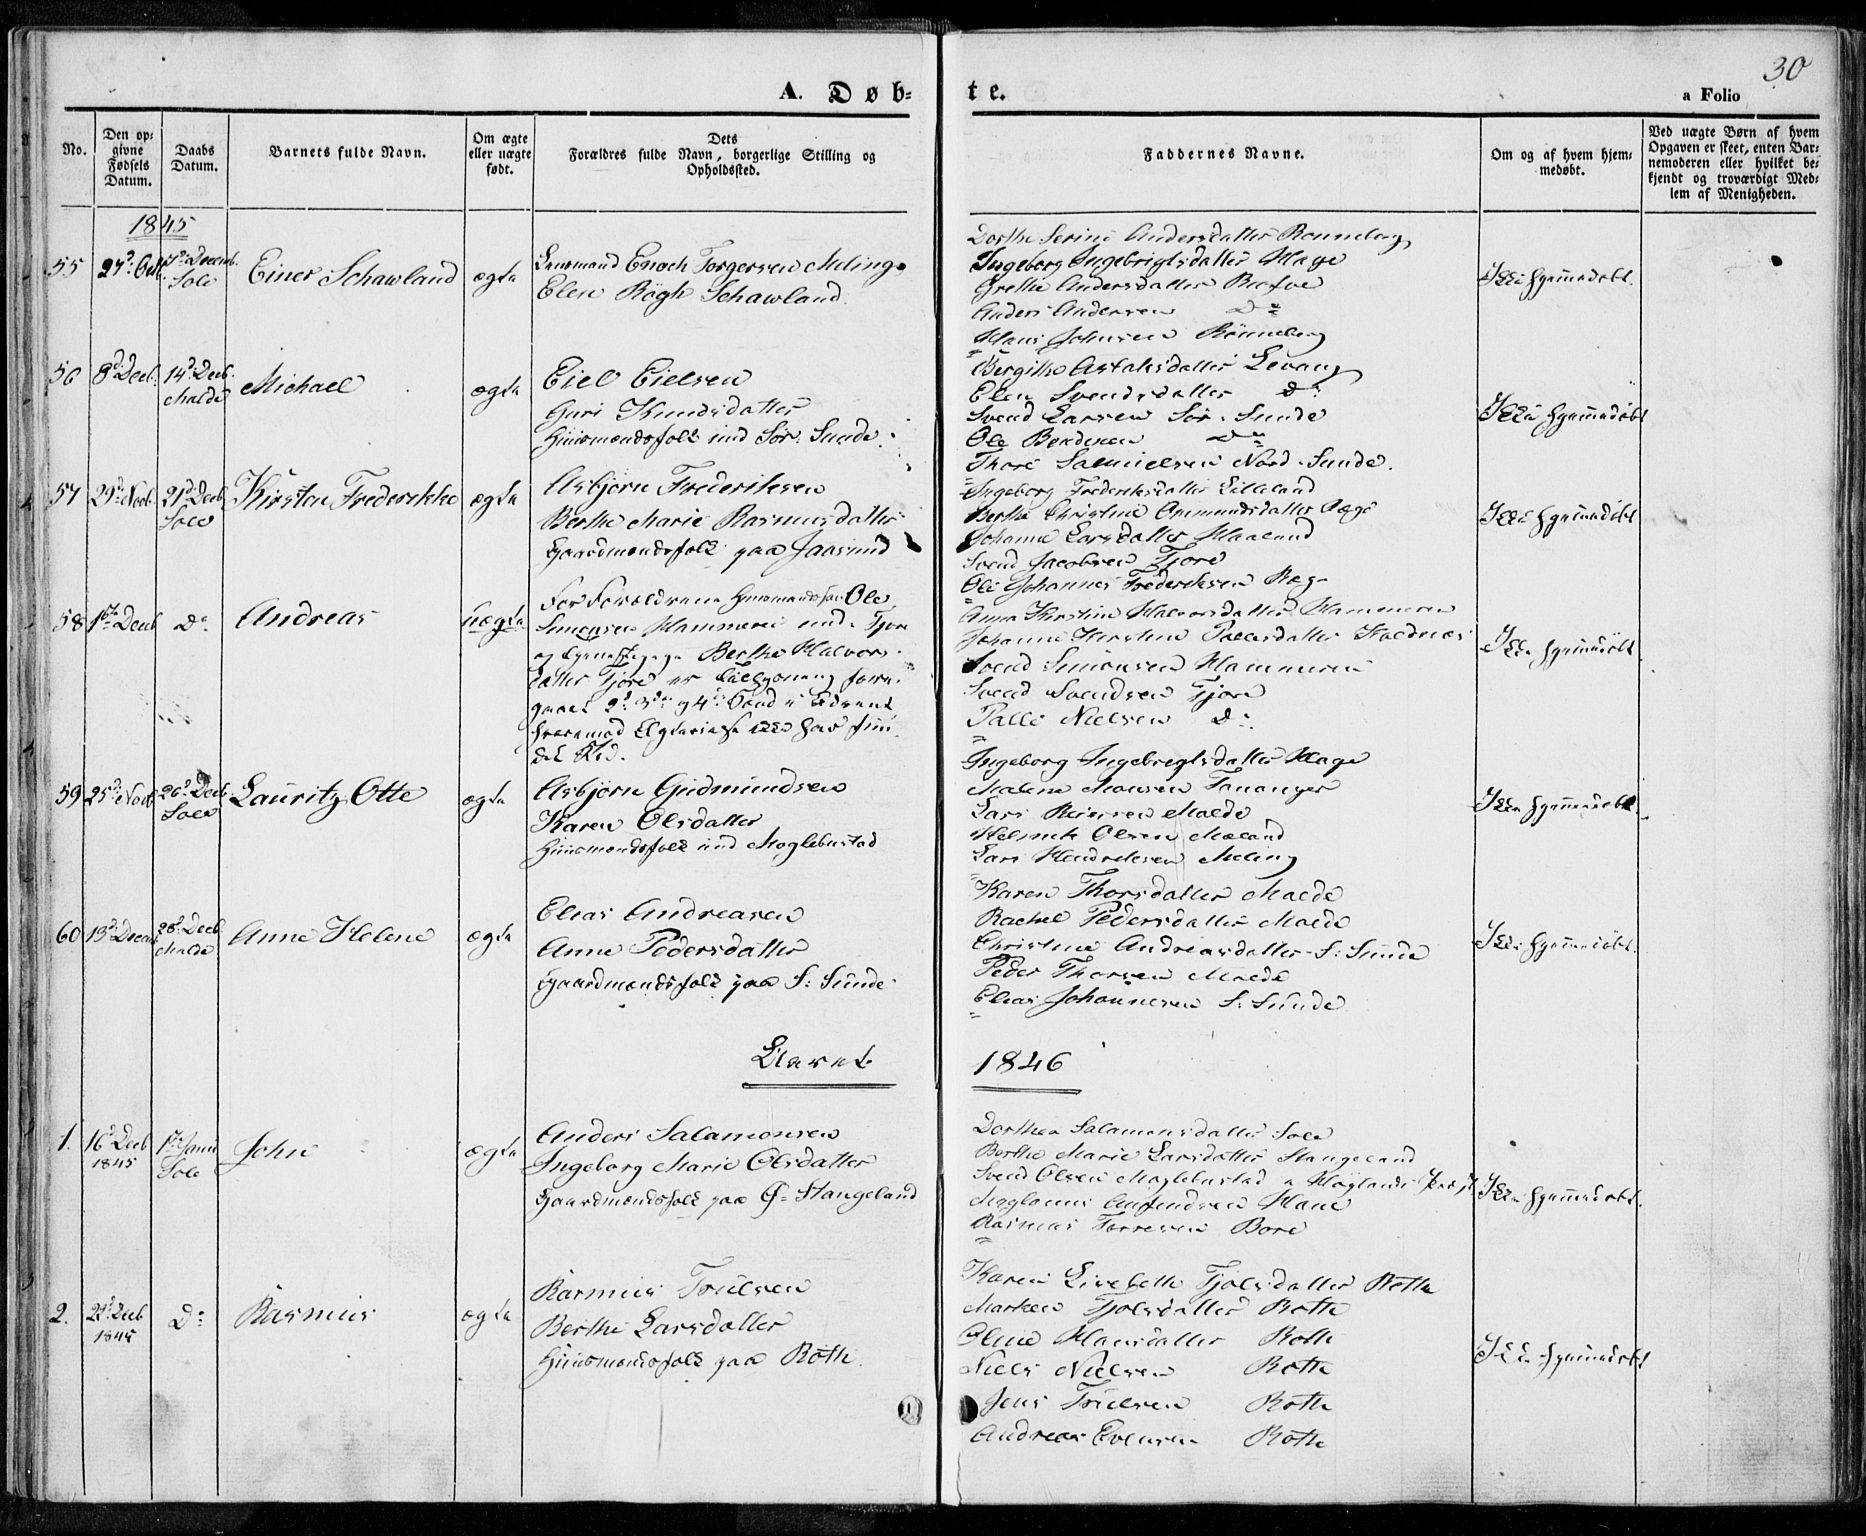 30
A. Døb-
te.
a Folio
No.
Den op-
givne
Fødsels
Datum.
Daabs
Datum.
Barnets fulde Navn.
Om ægte
eller uægte
født.
Dets
Forældres fulde Navn, borgerlige Stilling og
Opholdssted.
Faddernes Navne.
Om og af hvem hjem-
medøbt.
Ved uægte Børn af hvem
Opgaven er skeet, enten Bar-
nemoderen eller hvilket be-
kjendt og troværdigt Med-
lem af Menigheden.
1845
55
Sole
Einer Schawland
ægte
Lensmand Enoch Torgersen Meling
Elen Bøgh Schawland
Dorthe Serine Andersdatter Rønneberg
Ingeborg Ingebrigtsdatter Hage
Grethe Andersdatter
Anders Andersen Do
Hans Johnsen Rønneberg
Ikke hjemmedøbt.
56
8de Decb.
14de Decb.
Malde
Michael
ægte
Eiel Eielsen
Guri Knudsdatter
Huusmandsfolk und Sør-Sunde.
Bergithe Levang
Elen Svendsdatter Do
Svend Larsen Sør-Sunde
Ole Do
Thore Samuelsen Nord-Sunde.
Ikke hjemmedøbt
57
29de Novb.
21de Decb.
Sole
Kirsten Frederikke
ægte
Asbjørn Frederiksen
Berthe Marie Rasmusdatter
Gaardmandsfolk paa Jaasund
Ingeborg Frederiksdatter Lilleland
Berthe Christine Ommundsdatter Ræge
Johanne Larsdatter Haaland
Svend Jacobsen Tjore
Ole Johannes Frederiksen Ræge
Ikke hjemmedøbt
58
1ste Decb
Do
Andreas
uægte
For Forældrene Ole
Simonsen Hammeren und. Tjore
og Berthe Halvors-
datter Tjore er
2de 3die og 4de
det Sted.
Anna Kirstine Halvorsdatter Hammeren
Johanne Kirstine Pallesdatter
Svend Simonsen Hammeren
Svend Svendsen Tjore
Palle Nielsen Do
Ikke hjemmedøbt
59
25de Novb
26de Decb
Sole
Lauritz Otte
ægte
Asbjørn Gudmundsen
Karen Olsdatter
Huusmandsfolk und Myklebustad
Ingeborg Ingebregtsdatter Hage
Malene Monsen Tananger
Lars Reiersen Malde
Helmik Olsen Mæland
Lars Hendriksen Meling
Ikke hjemmedøbt
60
13de Decemb
28de Decb
Malde
Anne Helene
ægte
Elias Andreasen
Anne Pedersdatter
Gaardmandsfolk paa S: Sunde
Karen Thorsdatter Malde
Rachel Pedersdatter Malde
Christine Andreasdatter S: Sunde
Peder Thorsen Malde
Elias Johannesen S: Sunde
Ikke hjemmedøbt.
Aaret
1846
1.
16de Decb
1845
1ste Janu
Sole
John
ægte
Anders Salamonsen
Ingeborg Marie Olsdatter
Gaardmandsfolk paa Ø: Stangeland
Dorthea Salamonsdatter Sole
Berthe Marie Larsdatter Stangeland
Svend Olsen Myklebustad i Høylands Præstg
Hane
Rasmus Torresen Bore
Ikke hjemmedøbt.
2.
1845
Do
Rasmus
ægte
Rasmus Truelsen
Berthe Larsdatter
Huusmandsfolk paa Røth.
Karen Lisebeth Tjolsdatter Røth
Marken Tjolsdatter Røth
Oline Hansdatter Røth
Niels Nielsen Røth
Jens Truelsen Røth
Andreas Evensen Røth
Ikke hjemmedøbt